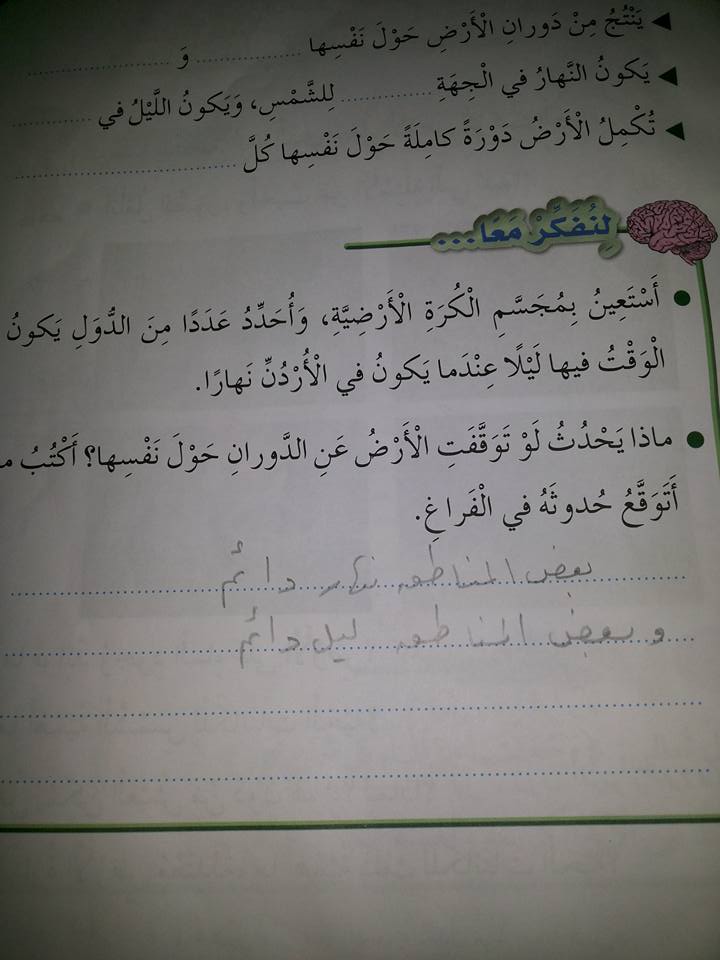 ◀ يَنْتُجُ مِنْ دَورانِ الْأَرْضِ حَوْلَ نَفْسِها .................... وَ ....................
◀ يَكونُ النَّهارُ في الْجِهَةِ .................... لِلشَّمْسِ، وَيَكونُ اللَّيْلُ في ....................
◀ تُكْمِلُ الْأَرْضُ دَوْرَةً كامِلَةً حَوْلَ نَفْسِها كُلَّ ....................
لِنُفَكِّرْ مَعًا...
● أَسْتَعِينُ بِمُجَسَّمِ الْكُرَةِ الْأَرْضِيَّةِ، وَأُحَدِّدُ عَدَدًا مِنَ الدُّوَلِ يَكونُ
الْوَقْتُ فيها لَيْلًا عِنْدَما يَكونُ في الْأُرْدُنِّ نَهارًا.
● ماذا يَحْدُثُ لَوْ تَوَقَّفَتِ الْأَرْضُ عَنِ الدَّورانِ حَوْلَ نَفْسِها؟ أَكْتُبُ م
أَتَوَقَّعُ حُدوثَهُ في الْفَراغِ.
بعض المناطق نهار دائم
وبعض المناطق ليل دائم